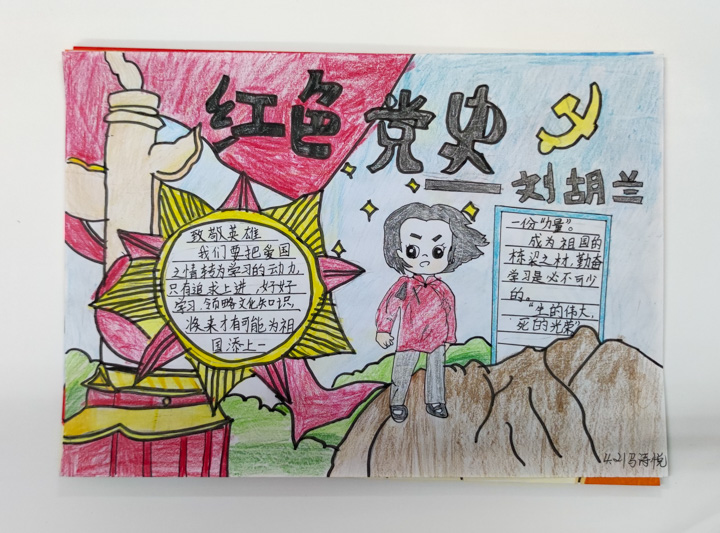 红色党史
刘胡兰
致敬英雄
我们要把爱国
之情转为学习的动力,
只有追求上进,好好
学习,领略文化知识,
将来才有可能为祖
国添上一
一份“力量”。
成为祖国的
栋梁之材,勤奋
学习是必不可少
的。
“生的伟大,
死的光荣”
4.21马诗悦